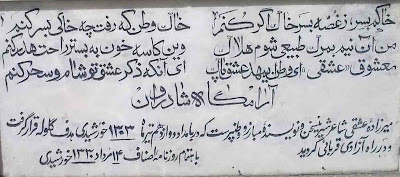 خاکم بسر ز غصه بسر خاک اگر کنم خاک وطن که رفت چه خاکی بسر کنم
من آن نیم بمرگ طبیعی شوم هلاک وین کاسه خون به بستر راحت هدر کنم
معشوق «عشقی» ای وطن ای عشق پاک ای آنکه ذکر عشق تو شام و سحر کنم
آرامگاه شادروان
میرزاده عشقی شاعر شیرین سخن و نویسنده و مبارز وطنپرست که در بامداد دوازدهم تیرماه ۱۳۰۳ خورشیدی هدف گلوله قرار گرفت
و در راه آزادی قربانی گردید باهتمام روزنامه اصناف ۱۴ مرداد ۱۳۳۰ خورشیدی